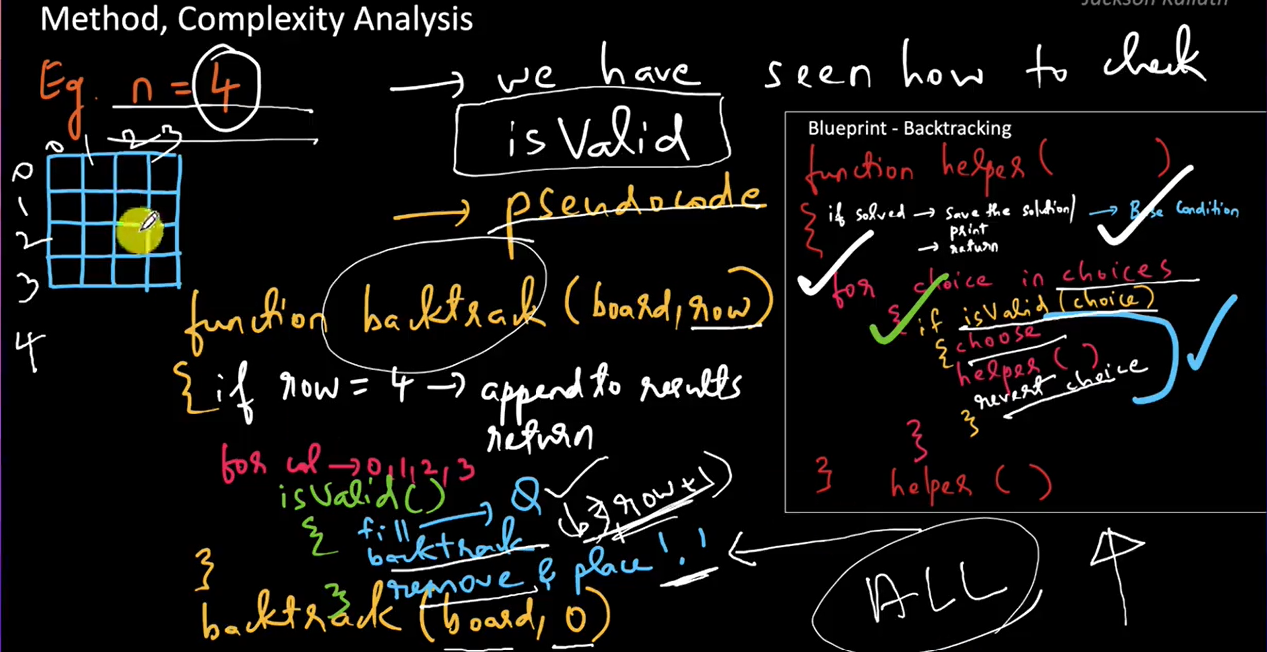 Method, Complexity Analysis
Eg. n = 4
0 1 2 3
0
1
2
3
4
→ we have seen how to check
isValid
→ pseudocode
function backtrack (board, row)
{ if row = 4 → append to results
return
for col → 0, 1, 2, 3
isValid()
{ fill → Q
backtrack (b, row+1)
remove & place '.'
}
}
backtrack (board, 0)
ALL
Blueprint - Backtracking
function helper( )
{ if solved → save the solution/ → Base Condition
print
→ return
for choice in choices
{ if isValid (choice)
{ choose
helper ( )
revert choice
}
}
} helper ( )